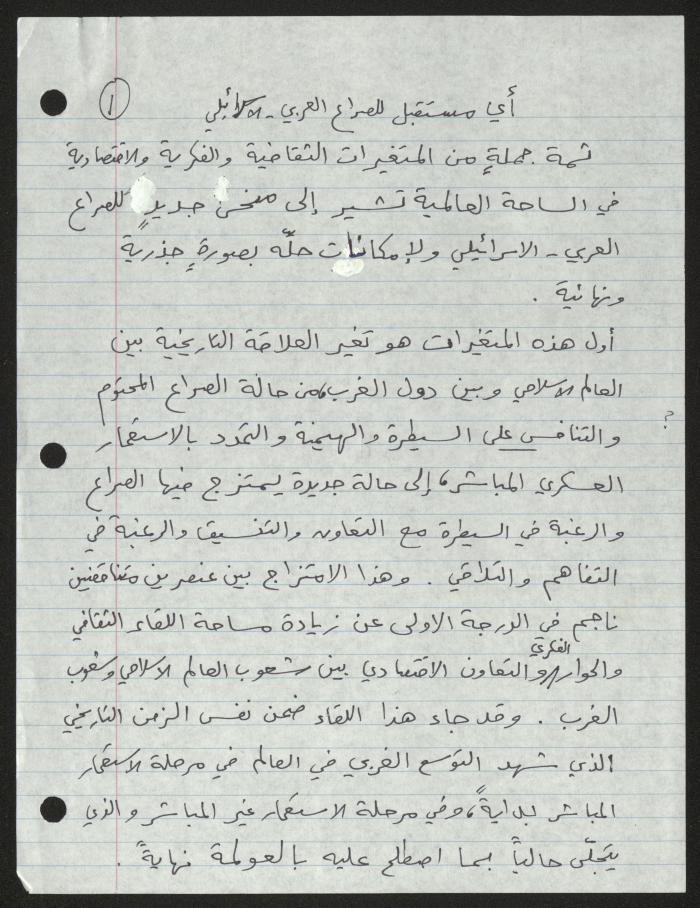 ١
أي مستقبل للصراع العربي - الاسرائيلي
ثمة جملةٍ من المتغيرات الثقافية والفكرية والاقتصادية
في الساحة العالمية تشير إلى منحىً جديدٍ للصراع
العربي - الاسرائيلي ولإمكانات حلّه بصورةٍ جذرية
ونهائية .
أول هذه المتغيرات هو تغير العلاقة التاريخية بين
العالم الاسلامي وبين دول الغرب، من حالة الصراع المحتوم
؟
والتنافس على السيطرة والهيمنة والتمدد بالاستعمار
العسكري المباشر، إلى حالة جديدة يمتزج فيها الصراع
والرغبة في السيطرة مع التعاون والتنسيق والرغبة في
التفاهم والتلاقي . وهذا الامتزاج بين عنصرين متناقضين
ناجم في الدرجة الاولى عن زيادة مساحة اللقاء الثقافي
الفكري
والحوار والتعاون الاقتصادي بين شعوب العالم الاسلامي وشعوب
الغرب . وقد جاء هذا اللقاء ضمن نفس الزمن التاريخي
الذي شهد التوسع الغربي في العالم في مرحلة الاستعمار
المباشر بدايةً، وفي مرحلة الاستعمار غير المباشر والذي
يتجلّى حالياً بما اصطلح عليه بالعولمة نهايةً .